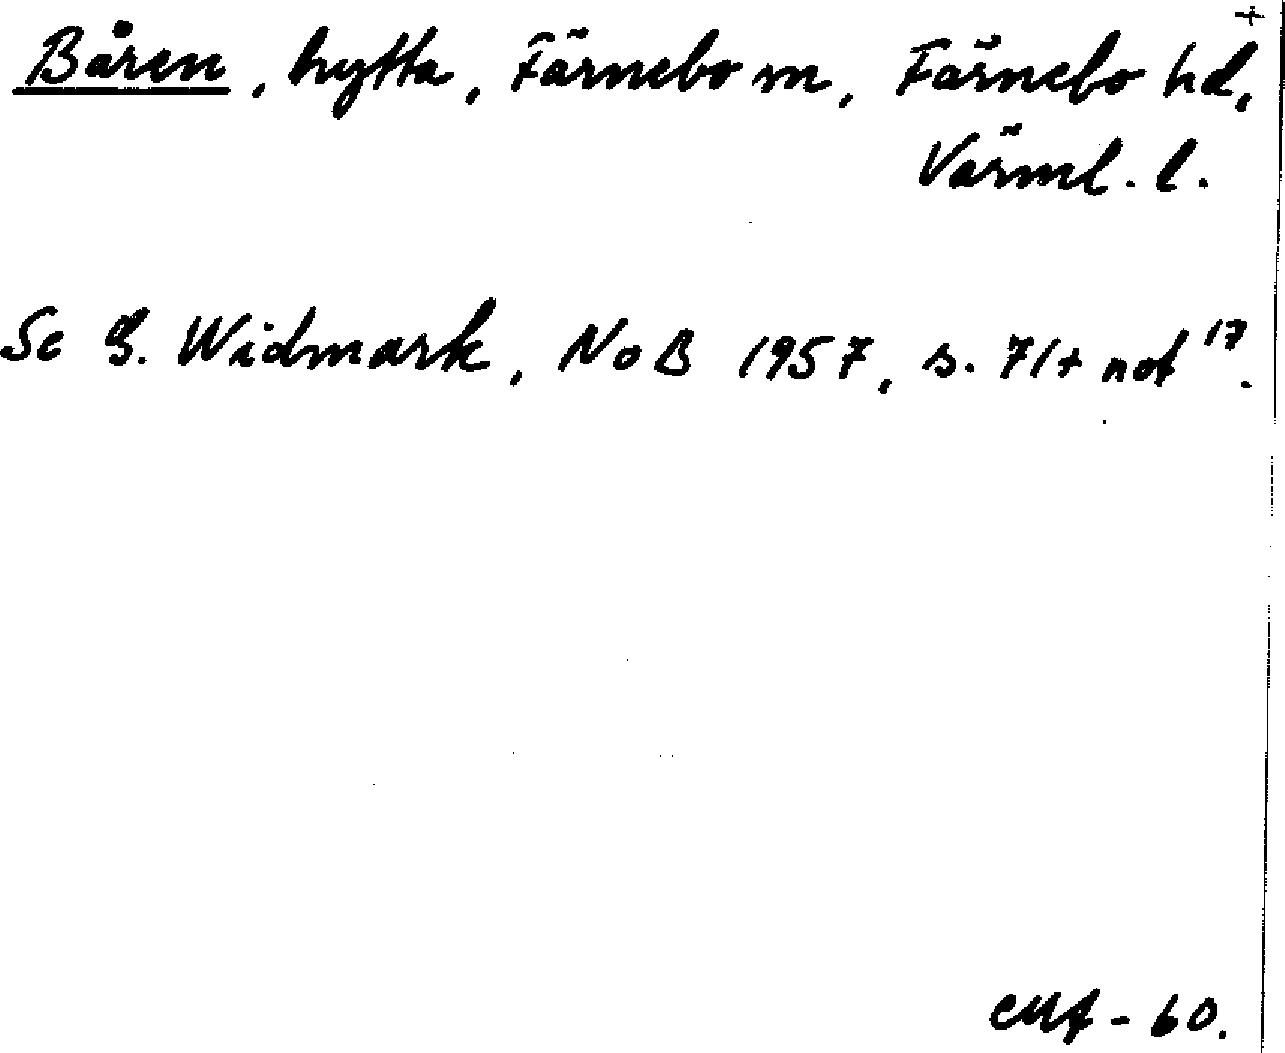 +
Båren, hytta, Färnebo sn, Färnebo hd,
Värml. l.
Se G. Widmark, NoB 1957, s. 71+ not 17.
CMf-60.